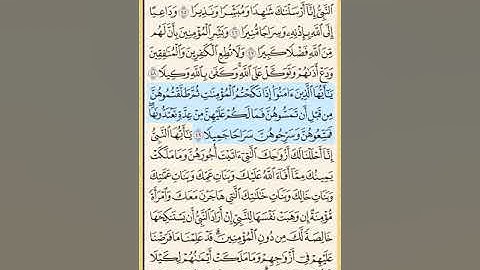 ٱلنَّبِىُّ إِنَّآ أَرْسَلْنَـٰكَ شَـٰهِدًا وَمُبَشِّرًا وَنَذِيرًا ۝٤٥ وَدَاعِيًا
إِلَى ٱللَّهِ بِإِذْنِهِۦ وَسِرَاجًا مُّنِيرًا ۝٤٦ وَبَشِّرِ ٱلْمُؤْمِنِينَ بِأَنَّ لَهُم
مِّنَ ٱللَّهِ فَضْلًا كَبِيرًا ۝٤٧ وَلَا تُطِعِ ٱلْكَـٰفِرِينَ وَٱلْمُنَـٰفِقِينَ
وَدَعْ أَذَىٰهُمْ وَتَوَكَّلْ عَلَى ٱللَّهِ وَكَفَىٰ بِٱللَّهِ وَكِيلًا ۝٤٨
يَـٰٓأَيُّهَا ٱلَّذِينَ ءَامَنُوٓا۟ إِذَا نَكَحْتُمُ ٱلْمُؤْمِنَـٰتِ ثُمَّ طَلَّقْتُمُوهُنَّ
مِن قَبْلِ أَن تَمَسُّوهُنَّ فَمَا لَكُمْ عَلَيْهِنَّ مِنْ عِدَّةٍ تَعْتَدُّونَهَا
فَمَتِّعُوهُنَّ وَسَرِّحُوهُنَّ سَرَاحًا جَمِيلًا ۝٤٩ يَـٰٓأَيُّهَا ٱلنَّبِىُّ
إِنَّآ أَحْلَلْنَا لَكَ أَزْوَٰجَكَ ٱلَّـٰتِىٓ ءَاتَيْتَ أُجُورَهُنَّ وَمَا مَلَكَتْ
يَمِينُكَ مِمَّآ أَفَآءَ ٱللَّهُ عَلَيْكَ وَبَنَاتِ عَمِّكَ وَبَنَاتِ عَمَّـٰتِكَ
وَبَنَاتِ خَالِكَ وَبَنَاتِ خَـٰلَـٰتِكَ ٱلَّـٰتِى هَاجَرْنَ مَعَكَ وَٱمْرَأَةً
مُّؤْمِنَةً إِن وَهَبَتْ نَفْسَهَا لِلنَّبِىِّ إِنْ أَرَادَ ٱلنَّبِىُّ أَن يَسْتَنكِحَهَا
خَالِصَةً لَّكَ مِن دُونِ ٱلْمُؤْمِنِينَ ۗ قَدْ عَلِمْنَا مَا فَرَضْنَا
عَلَيْهِمْ فِىٓ أَزْوَٰجِهِمْ وَمَا مَلَكَتْ أَيْمَـٰنُهُمْ لِكَيْلَا